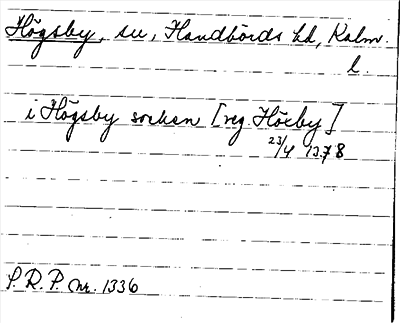 Högsby, sn, Handbörds hd, Kalm.
l.
i Högsby socken [reg. Höxby]
23/4 1378
S.R.P. nr. 1336